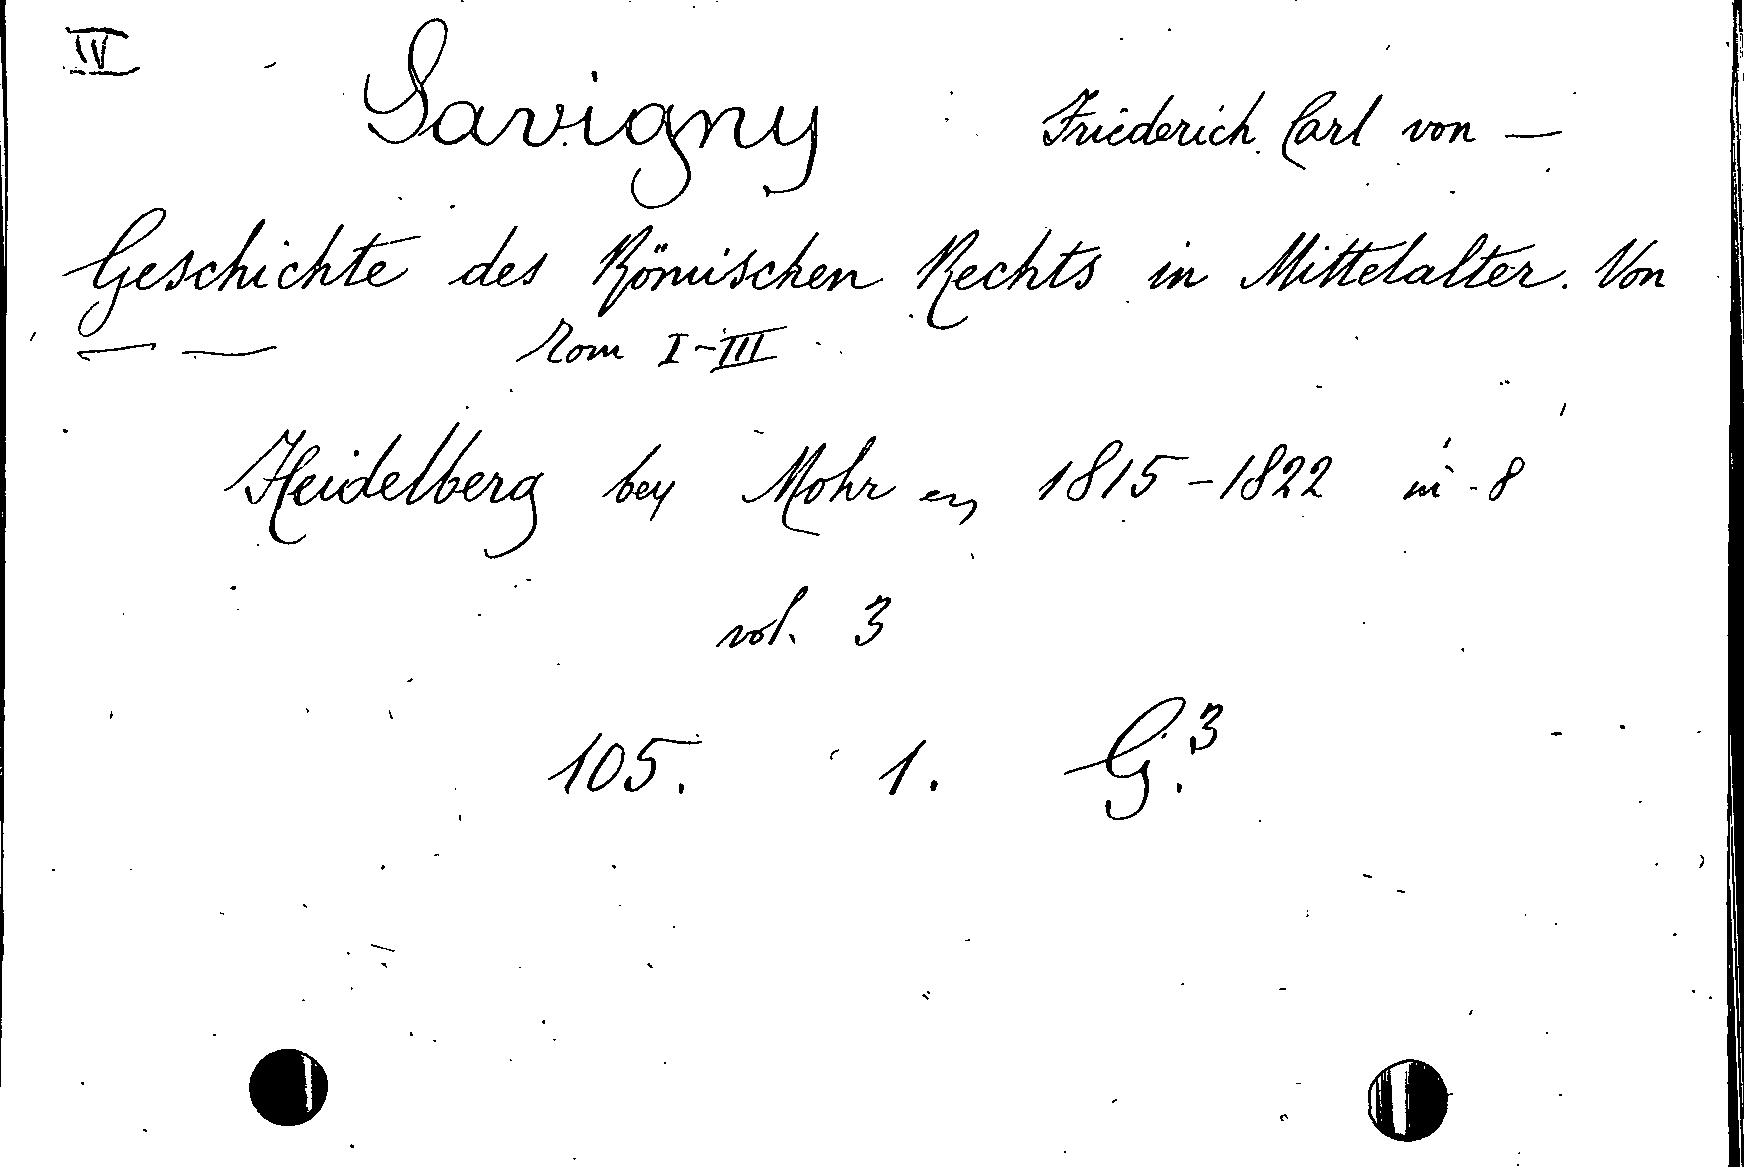 IV
Savigny Friederich Carl von —
Geschichte des Römischen Rechts in Mittelalter. Von
— — Tom I-III
Heidelberg bey Mohr 1815-1822 in 8
vol. 3
105. 1. G.³